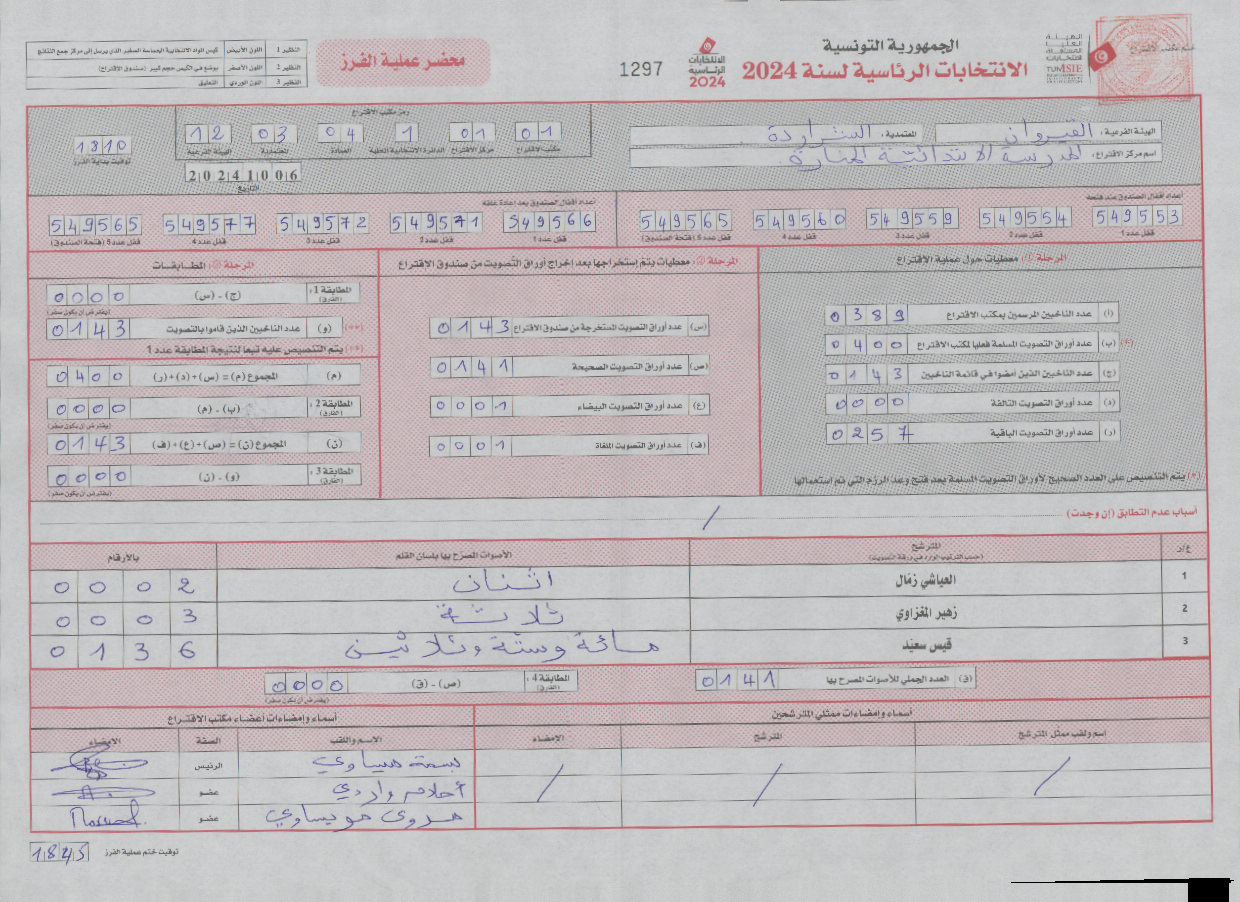 الجمهورية التونسية
الانتخابات الرئاسية لسنة 2024
الهيئة العليا المستقلة للانتخابات
TUNISIE
الانتخابات الرئاسية 2024
1297
محضر عملية الفرز
النظير 1 اللون الأبيض كيس المواد الانتخابية الحساسة الصغير الذي يرسل إلى مركز جمع النتائج
النظير 2 اللون الأصفر يوضع في الكيس حجم كبير (صندوق الاقتراع)
النظير 3 اللون الوردي التعليق
الهيئة الفرعية : القيروان المعتمدية : الشراردة
اسم مركز الاقتراع : المدرسة الابتدائية المنارة
رمز مكتب الاقتراع
01 01 1 04 03 12
مكتب الاقتراع مركز الاقتراع الدائرة الانتخابية المحلية العمادة المعتمدية الهيئة الفرعية
1810
توقيت بداية الفرز
20241006
التاريخ
أعداد أقفال الصندوق عند فتحه
549553 549554 549559 549560 549565
قفل عدد 1 قفل عدد 2 قفل عدد 3 قفل عدد 4 قفل عدد 5 (فتحة الصندوق)
أعداد أقفال الصندوق بعد إعادة غلقه
549566 549571 549572 549577 549565
قفل عدد 1 قفل عدد 2 قفل عدد 3 قفل عدد 4 قفل عدد 5 (فتحة الصندوق)
المرحلة 1 : معطيات حول عملية الاقتراع
(أ) عدد الناخبين المرسمين بمكتب الاقتراع 0389
(*) (ب) عدد أوراق التصويت المسلمة فعليا لمكتب الاقتراع 0400
(ج) عدد الناخبين الذين أمضوا في قائمة الناخبين 0143
(د) عدد أوراق التصويت التالفة 0000
(ر) عدد أوراق التصويت الباقية 0257
(*) يتم التنصيص على العدد الصحيح لأوراق التصويت المسلمة بعد فتح وعد الرزم التي تم استعمالها
المرحلة 2 : معطيات يتم إستخراجها بعد اخراج أوراق التصويت من صندوق الاقتراع
(س) عدد أوراق التصويت المستخرجة من صندوق الاقتراع 0143
(ص) عدد أوراق التصويت الصحيحة 0141
(ع) عدد أوراق التصويت البيضاء 0001
(ف) عدد أوراق التصويت الملغاة 0001
المرحلة 3 : المطابقات
المطابقة 1 : (الفارق) (ج) - (س) 0000
(يفترض أن يكون صفر)
(**) (و) عدد الناخبين الذين قاموا بالتصويت 0143
(**) يتم التنصيص عليه تبعا لنتيجة المطابقة عدد 1
(م) المجموع (م) = (س) + (د) + (ر) 0400
المطابقة 2 : (الفارق) (ب) - (م) 0000
(يفترض أن يكون صفر)
(ن) المجموع (ن) = (ص) + (ع) + (ف) 0143
المطابقة 3 : (الفارق) (و) - (ن) 0000
(يفترض أن يكون صفر)
أسباب عدم التطابق (إن وجدت) /
ع/د المترشح الأصوات المصرح بها بلسان القلم بالأرقام
(حسب الترتيب الوارد في ورقة التصويت)
1 العياشي زمّال اثنان 0002
2 زهير المغزاوي ثلاثة 0003
3 قيس سعيّد مائة وستة وثلاثين 0136
(ق) العدد الجملي للأصوات المصرح بها 0141
المطابقة 4 : (الفارق) (ص) - (ق) 0000
(يفترض أن يكون صفر)
أسماء وإمضاءات ممثلي المترشحين
اسم ولقب ممثل المترشح المترشح الامضاء
/ / /
أسماء وإمضاءات أعضاء مكتب الاقتراع
الاسم واللقب الصفة الامضاء
بسمة عيساوي الرئيس
أحلام واردي عضو
مروى مويساوي عضو
توقيت ختم عملية الفرز 1843